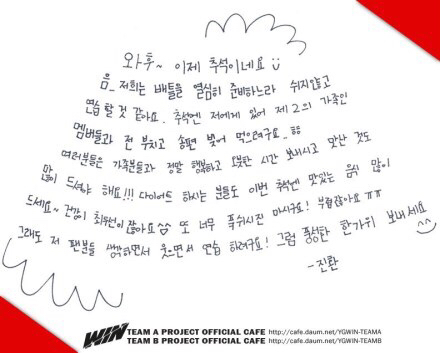 와후~ 이제 추석이네요
음_ 저희는 배틀을 열심히 준비하느라 쉬지않고
연습 할 것 같아요. 추석엔 저에게 있어 제2의 가족인
멤버들과 전 부치고 송편 빚어 먹으려구요.
여러분들은 가족분들과 정말 행복하고 오붓한 시간 보내시고 맛난 것도
많이 드셔야 해요!!! 다이어트 하시는 분들도 이번 추석에 맛있는 음식 많이
드세요~ 건강이 최우선이잖아요 또 너무 푹쉬시진 마시구요! 부럽잖아요 ㅠㅠ
그래도 저 팬분들 생각하면서 웃으면서 연습 하려구요! 그럼 풍성한 한가위 보내세요 ^^
-진환
WIN TEAM A PROJECT OFFICIAL CAFE http://cafe.daum.net/YGWIN-TEAMA
TEAM B PROJECT OFFICIAL CAFE http://cafe.daum.net/YGWIN-TEAMB